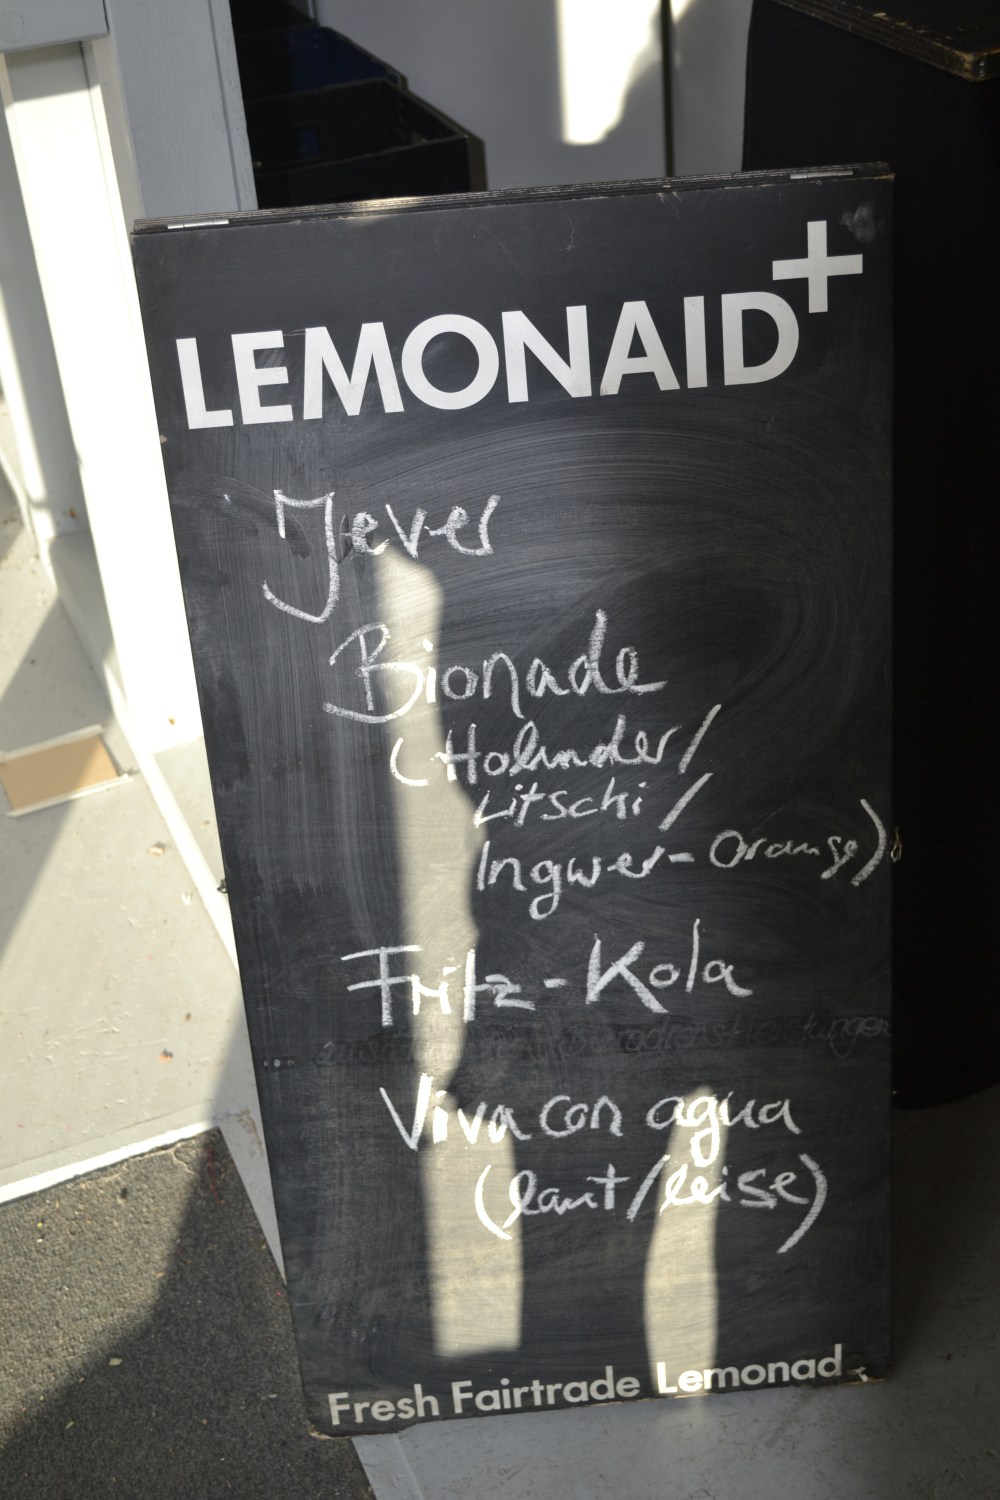 LEMONAID+
Jever
Bionade
(Holunder/
Litschi/
Ingwer-Orange)
Fritz-Kola
Viva con agua
(laut/leise)
Fresh Fairtrade Lemonad